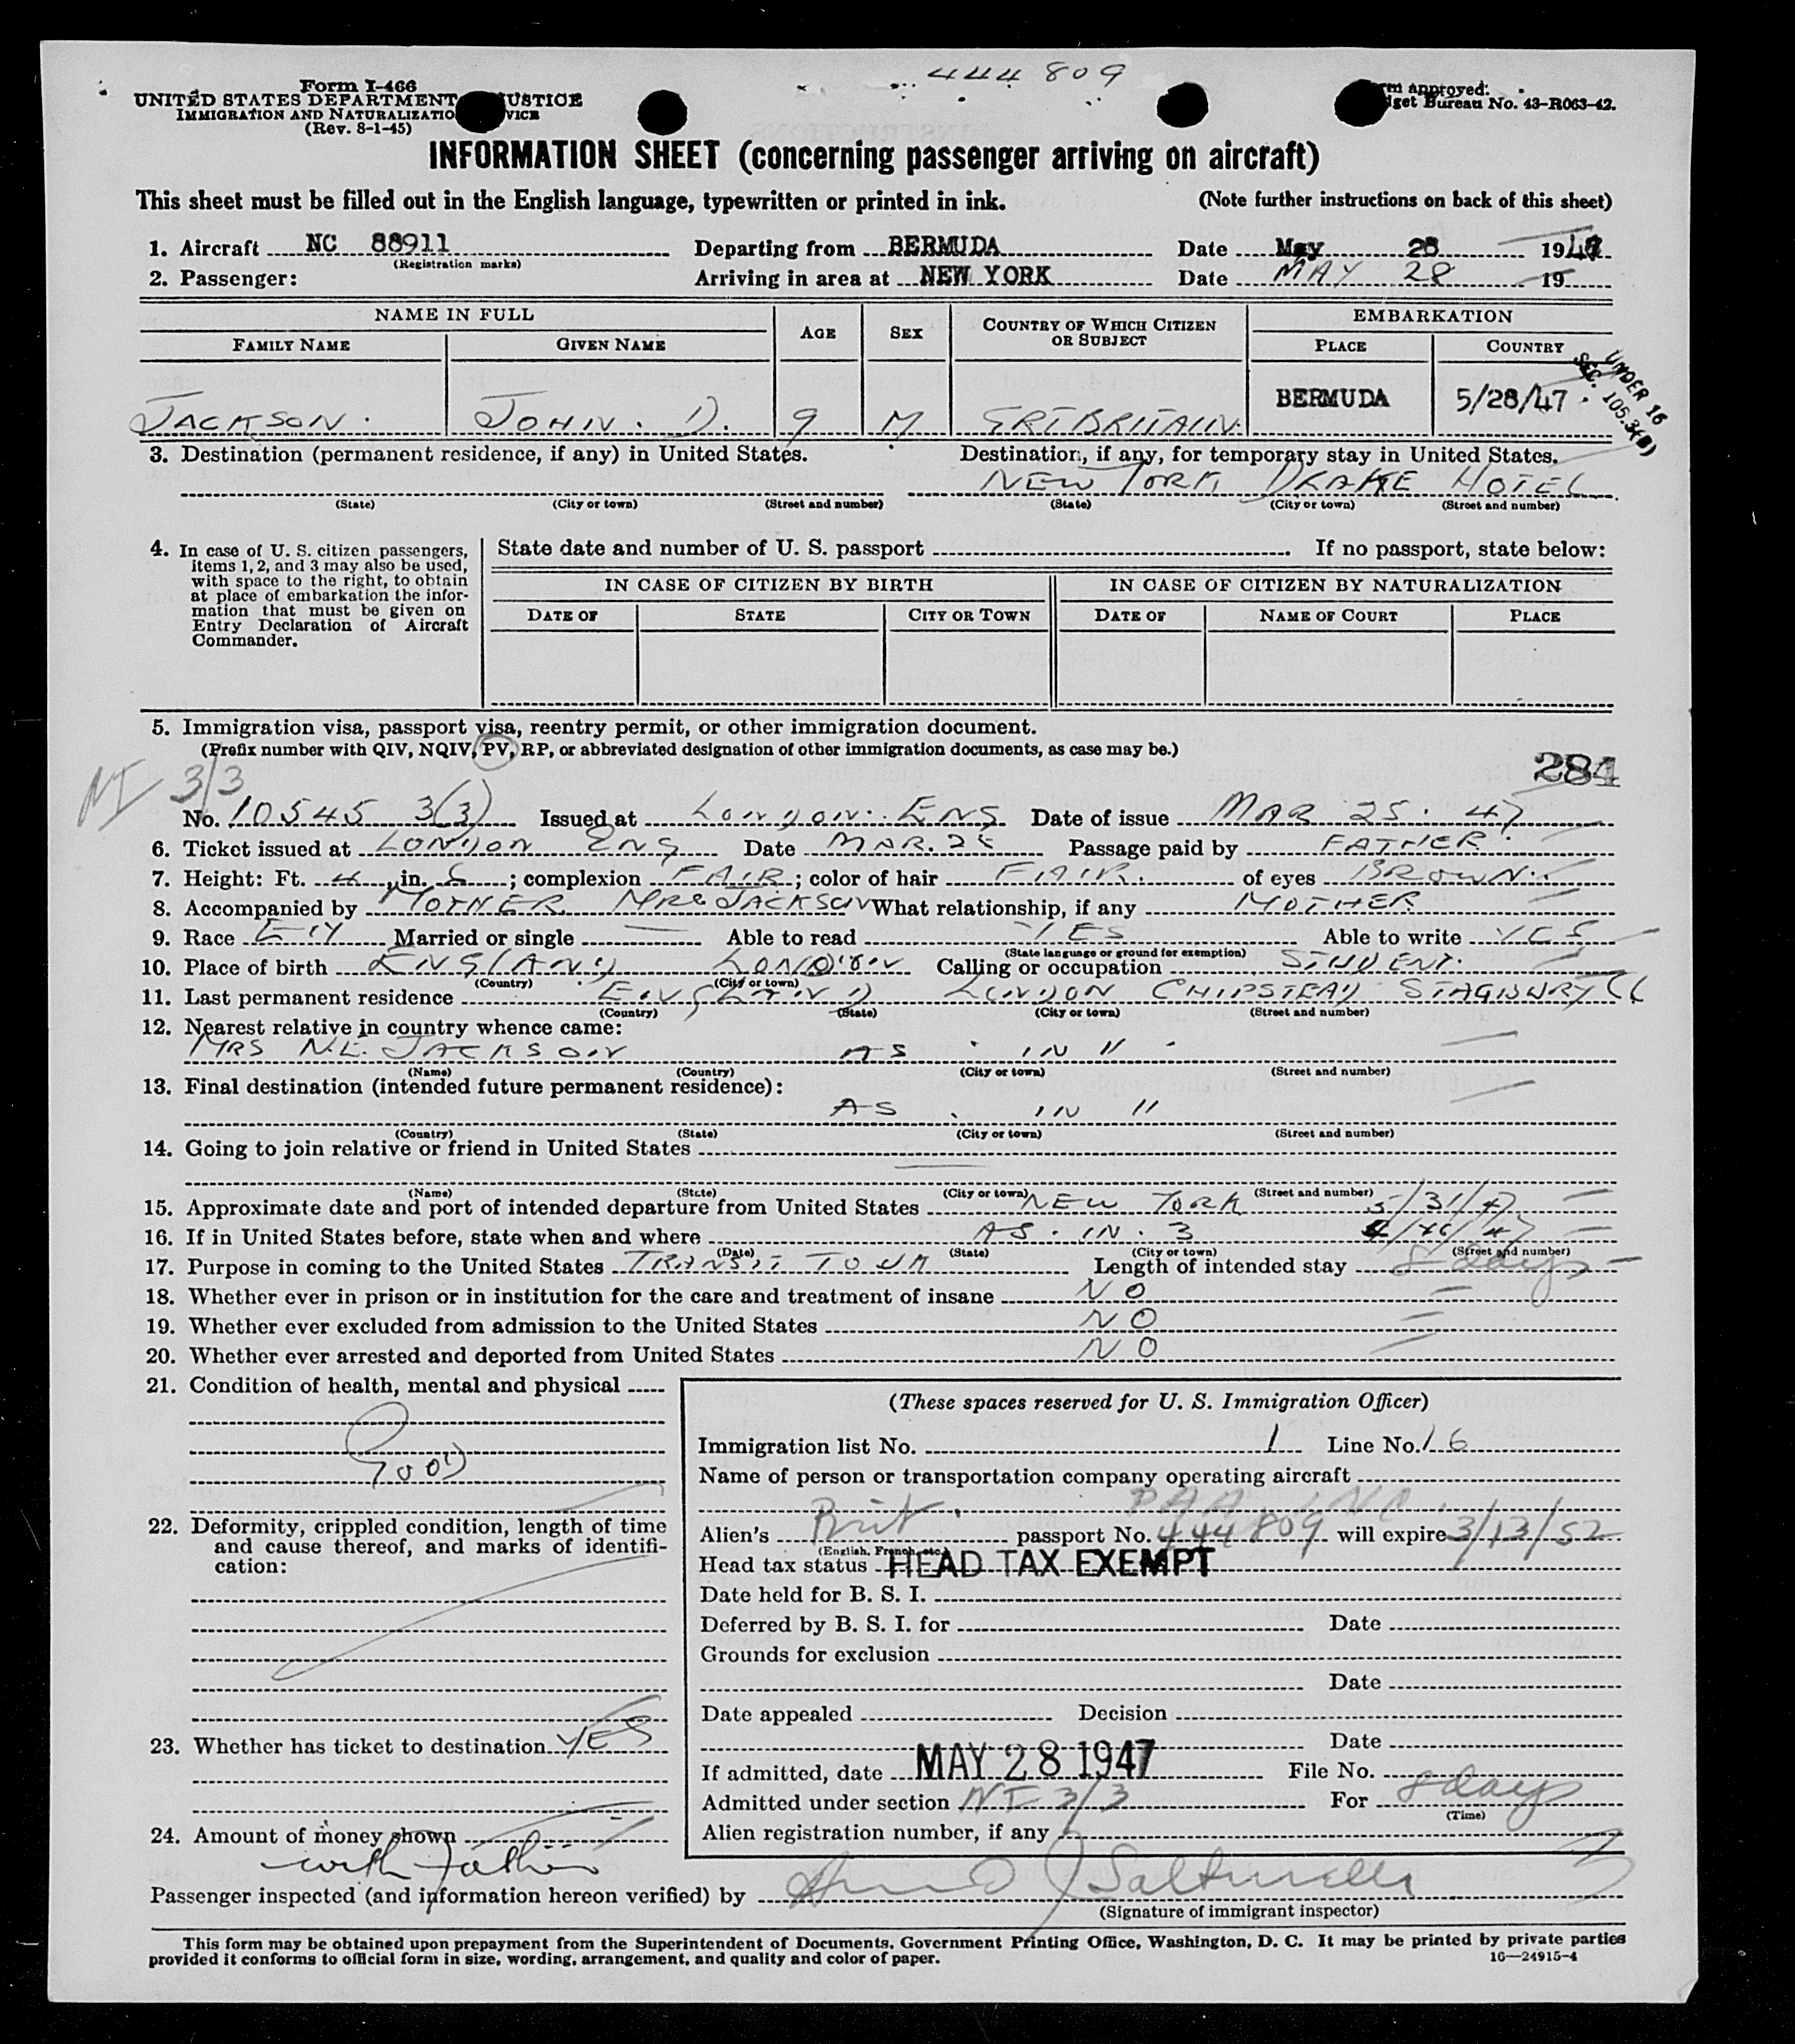 444 809
Form I-466
UNITED STATES DEPARTMENT USTICE
IMMIGRATION AND NATURALIZATIO VICE
(Rev. 8-1-45)
rm approved.
dget Bureau No. 43-R063-42.
INFORMATION SHEET (concerning passenger arriving on aircraft)
This sheet must be filled out in the English language, typewritten or printed in ink. (Note further instructions on back of this sheet)
1. Aircraft NC 88911 Departing from BERMUDA Date May 28 1947
(Registration marks)
2. Passenger: Arriving in area at NEW YORK Date MAY 28 19
NAME IN FULL AGE SEX COUNTRY OF WHICH CITIZEN OR SUBJECT EMBARKATION
FAMILY NAME GIVEN NAME PLACE COUNTRY
UNDER 16
SEC. 105.3(B)
JACKSON. JOHN. D. 9 M GRTBRITAIN. BERMUDA 5/28/47
3. Destination (permanent residence, if any) in United States. Destination, if any, for temporary stay in United States.
NEW YORK DRAKE HOTEL
(State) (City or town) (Street and number) (State) (City or town) (Street and number)
4. In case of U. S. citizen passengers, items 1, 2, and 3 may also be used, with space to the right, to obtain at place of embarkation the information that must be given on Entry Declaration of Aircraft Commander.
State date and number of U. S. passport If no passport, state below:
IN CASE OF CITIZEN BY BIRTH IN CASE OF CITIZEN BY NATURALIZATION
DATE OF STATE CITY OR TOWN DATE OF NAME OF COURT PLACE
5. Immigration visa, passport visa, reentry permit, or other immigration document.
(Prefix number with QIV, NQIV, PV, RP, or abbreviated designation of other immigration documents, as case may be.)
284
NI 3/3
No. 10545 3(3) Issued at LONDON. ENG Date of issue MAR 25. 47
6. Ticket issued at LONDON ENG Date MAR. 25 Passage paid by FATHER
7. Height: Ft. 4, in. 6; complexion FAIR; color of hair FAIR. of eyes BROWN.
8. Accompanied by MOTHER MRS JACKSON What relationship, if any MOTHER
9. Race Married or single — Able to read YES Able to write YES
(State language or ground for exemption)
10. Place of birth ENGLAND LONDON Calling or occupation STUDENT.
(Country) (City or town)
11. Last permanent residence ENGLAND LONDON CHIPSTEAD
(Country) (State) (City or town) (Street and number)
12. Nearest relative in country whence came:
MRS N.L. JACKSON AS IN 11
(Name) (Country) (City or town) (Street and number)
13. Final destination (intended future permanent residence):
AS IN 11
(Country) (State) (City or town) (Street and number)
14. Going to join relative or friend in United States
(Name) (State) (City or town) (Street and number)
15. Approximate date and port of intended departure from United States NEW YORK 5/31/47
16. If in United States before, state when and where AS. IN. 3
(Date) (State) (City or town) (Street and number)
17. Purpose in coming to the United States TRANSIT TO UK Length of intended stay 8 days
18. Whether ever in prison or in institution for the care and treatment of insane NO
19. Whether ever excluded from admission to the United States NO
20. Whether ever arrested and deported from United States NO
21. Condition of health, mental and physical
GOOD
22. Deformity, crippled condition, length of time and cause thereof, and marks of identification:
23. Whether has ticket to destination YES
24. Amount of money shown
with father
(These spaces reserved for U. S. Immigration Officer)
Immigration list No. 1 Line No. 16
Name of person or transportation company operating aircraft
PAA. INC.
Alien's Brit. passport No. 444809 will expire 3/13/52
(English, French, etc.)
Head tax status HEAD TAX EXEMPT
Date held for B. S. I.
Deferred by B. S. I. for Date
Grounds for exclusion
Date
Date appealed Decision
Date
If admitted, date MAY 28 1947 File No.
Admitted under section NI 3/3 For 8 days
(Time)
Alien registration number, if any
Passenger inspected (and information hereon verified) by
(Signature of immigrant inspector)
This form may be obtained upon prepayment from the Superintendent of Documents, Government Printing Office, Washington, D. C. It may be printed by private parties
provided it conforms to official form in size, wording, arrangement, and quality and color of paper. 16—24915-4